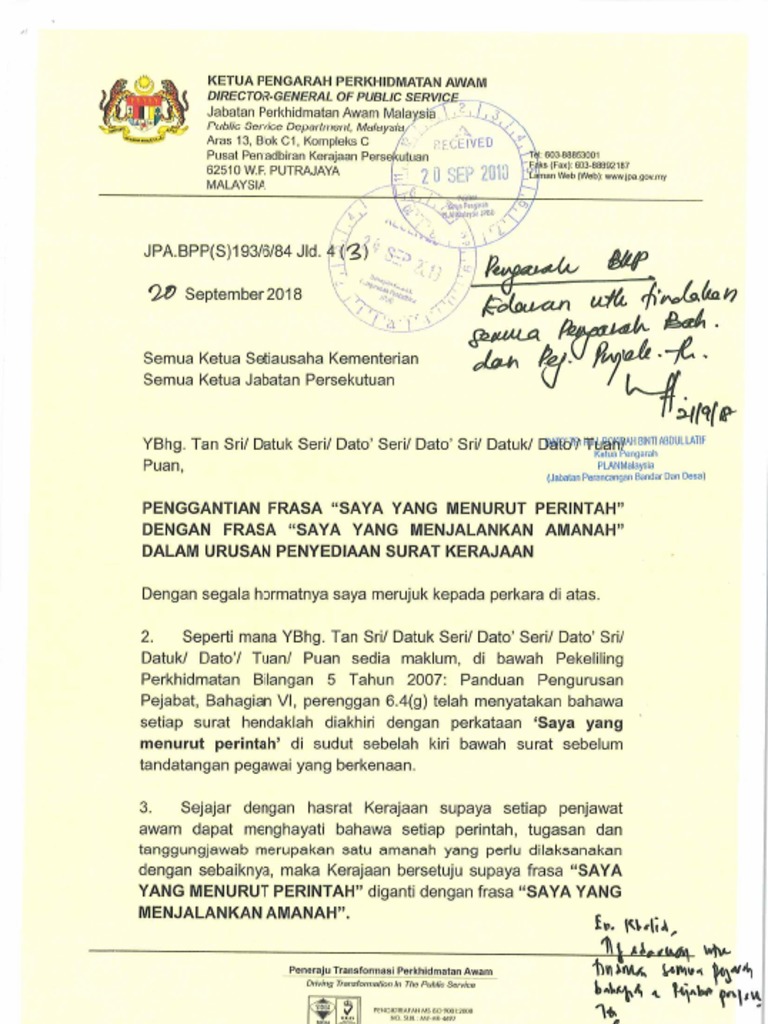 KETUA PENGARAH PERKHIDMATAN AWAM
DIRECTOR-GENERAL OF PUBLIC SERVICE
Jabatan Perkhidmatan Awam Malaysia
Public Service Department, Malaysia
Aras 13, Blok C1, Kompleks C
Pusat Pentadbiran Kerajaan Persekutuan
62510 W.P. PUTRAJAYA
MALAYSIA
Tel: 603-88853001
Faks (Fax): 603-88892187
Laman Web (Web): www.jpa.gov.my
RECEIVED
20 SEP 2018
JPA.BPP(S)193/6/84 Jld. 4 (3)
SEP
20 September 2018
Pengarah BKP
Edaran utk tindakan
semua Pengarah Bah.
dan Pej.
21/9/18
Semua Ketua Setiausaha Kementerian
Semua Ketua Jabatan Persekutuan
YBhg. Tan Sri/ Datuk Seri/ Dato' Seri/ Dato' Sri/ Datuk/ Dato'/ Tuan/
Puan,
BINTI ABDUL LATIF
Ketua Pengarah
PLANMalaysia
(Jabatan Perancangan Bandar Dan Desa)
PENGGANTIAN FRASA “SAYA YANG MENURUT PERINTAH”
DENGAN FRASA “SAYA YANG MENJALANKAN AMANAH”
DALAM URUSAN PENYEDIAAN SURAT KERAJAAN
Dengan segala hormatnya saya merujuk kepada perkara di atas.
2. Seperti mana YBhg. Tan Sri/ Datuk Seri/ Dato' Seri/ Dato' Sri/
Datuk/ Dato'/ Tuan/ Puan sedia maklum, di bawah Pekeliling
Perkhidmatan Bilangan 5 Tahun 2007: Panduan Pengurusan
Pejabat, Bahagian VI, perenggan 6.4(g) telah menyatakan bahawa
setiap surat hendaklah diakhiri dengan perkataan ‘Saya yang
menurut perintah’ di sudut sebelah kiri bawah surat sebelum
tandatangan pegawai yang berkenaan.
3. Sejajar dengan hasrat Kerajaan supaya setiap penjawat
awam dapat menghayati bahawa setiap perintah, tugasan dan
tanggungjawab merupakan satu amanah yang perlu dilaksanakan
dengan sebaiknya, maka Kerajaan bersetuju supaya frasa “SAYA
YANG MENURUT PERINTAH” diganti dengan frasa “SAYA YANG
MENJALANKAN AMANAH”.
En. Khalid,
semua
Peneraju Transformasi Perkhidmatan Awam
Driving Transformation In The Public Service
PENSIJILAN MS ISO 9001:2008